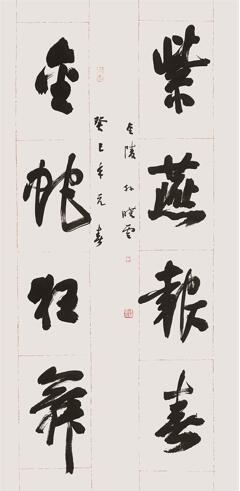 紫燕報春
金蛇狂舞
癸巳年元春
金陵孙晓云